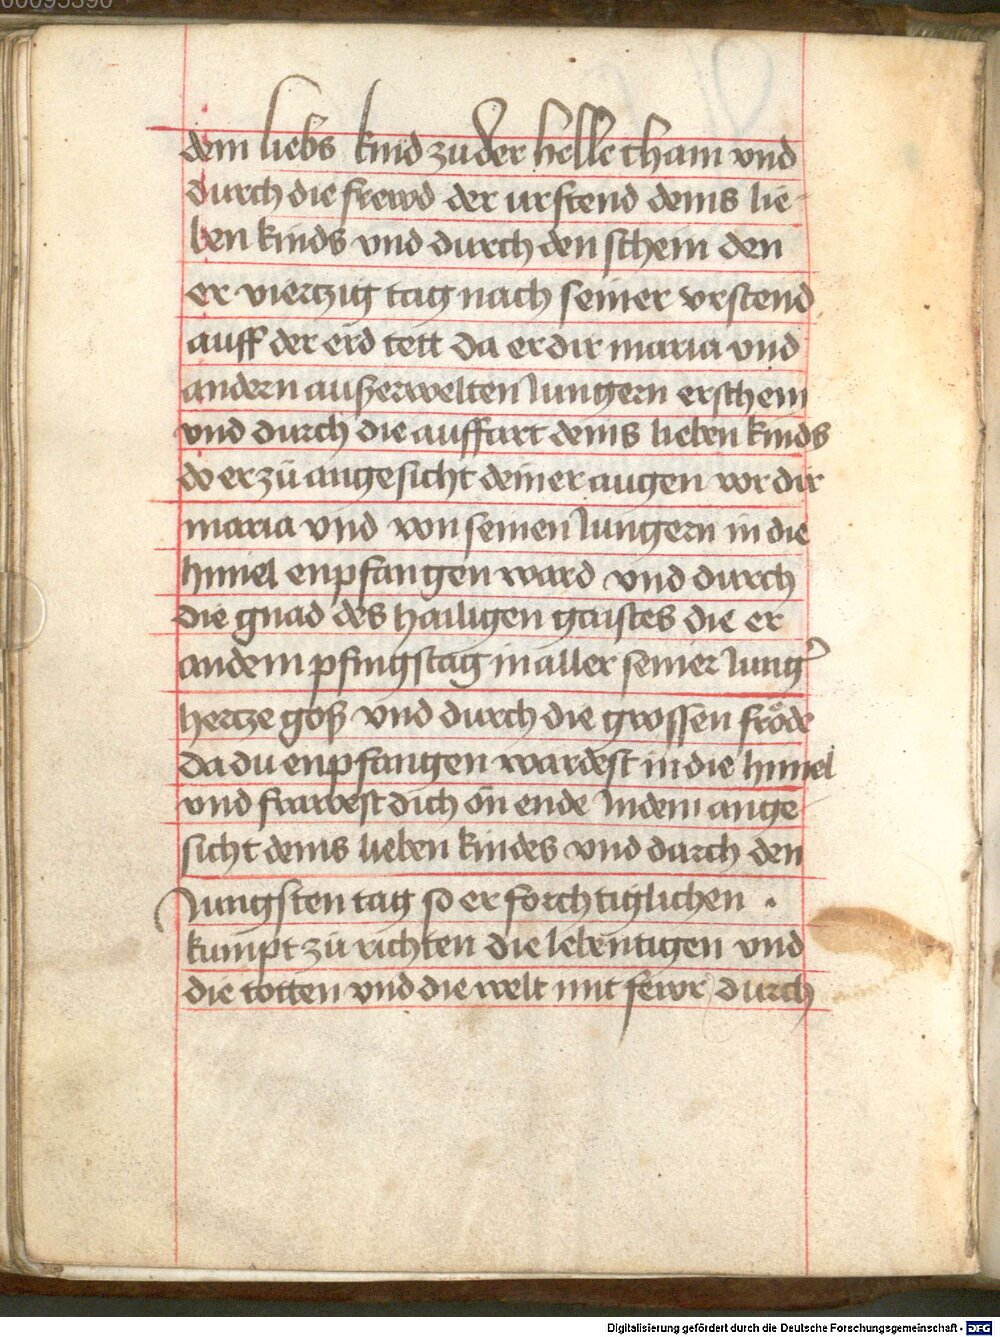 00095390
dein liebs kind zu der helle cham vnd
durch die frewd der urstend deins lie-
ben kinds vnd durch den schein den
er viertzig tag nach seiner vrstend
auff der erd tett da er dir maria vnd
andern außerwelten Jungern erschein
vnd durch die auffart deins lieben kinds
do er zů angesicht deiner augen vor dir
maria vnd von seinen Jungern in die
himel enpfangen ward vnd durch
die gnad des hailigen gaistes die er
an dem pfingstag in aller seiner Jung̉
hertze goß vnd durch die grossen fröde
da du enpfangen wardest in die himel
vnd frawest dich on ende In dem ange
sicht deins lieben kindes vnd durch den
Jungsten tag so er forchtiglichen ·
kumpt zů richten die lebentigen vnd
die totten vnd die welt mit fewr durch
Digitalisierung gefördert durch die Deutsche Forschungsgemeinschaft - DFG